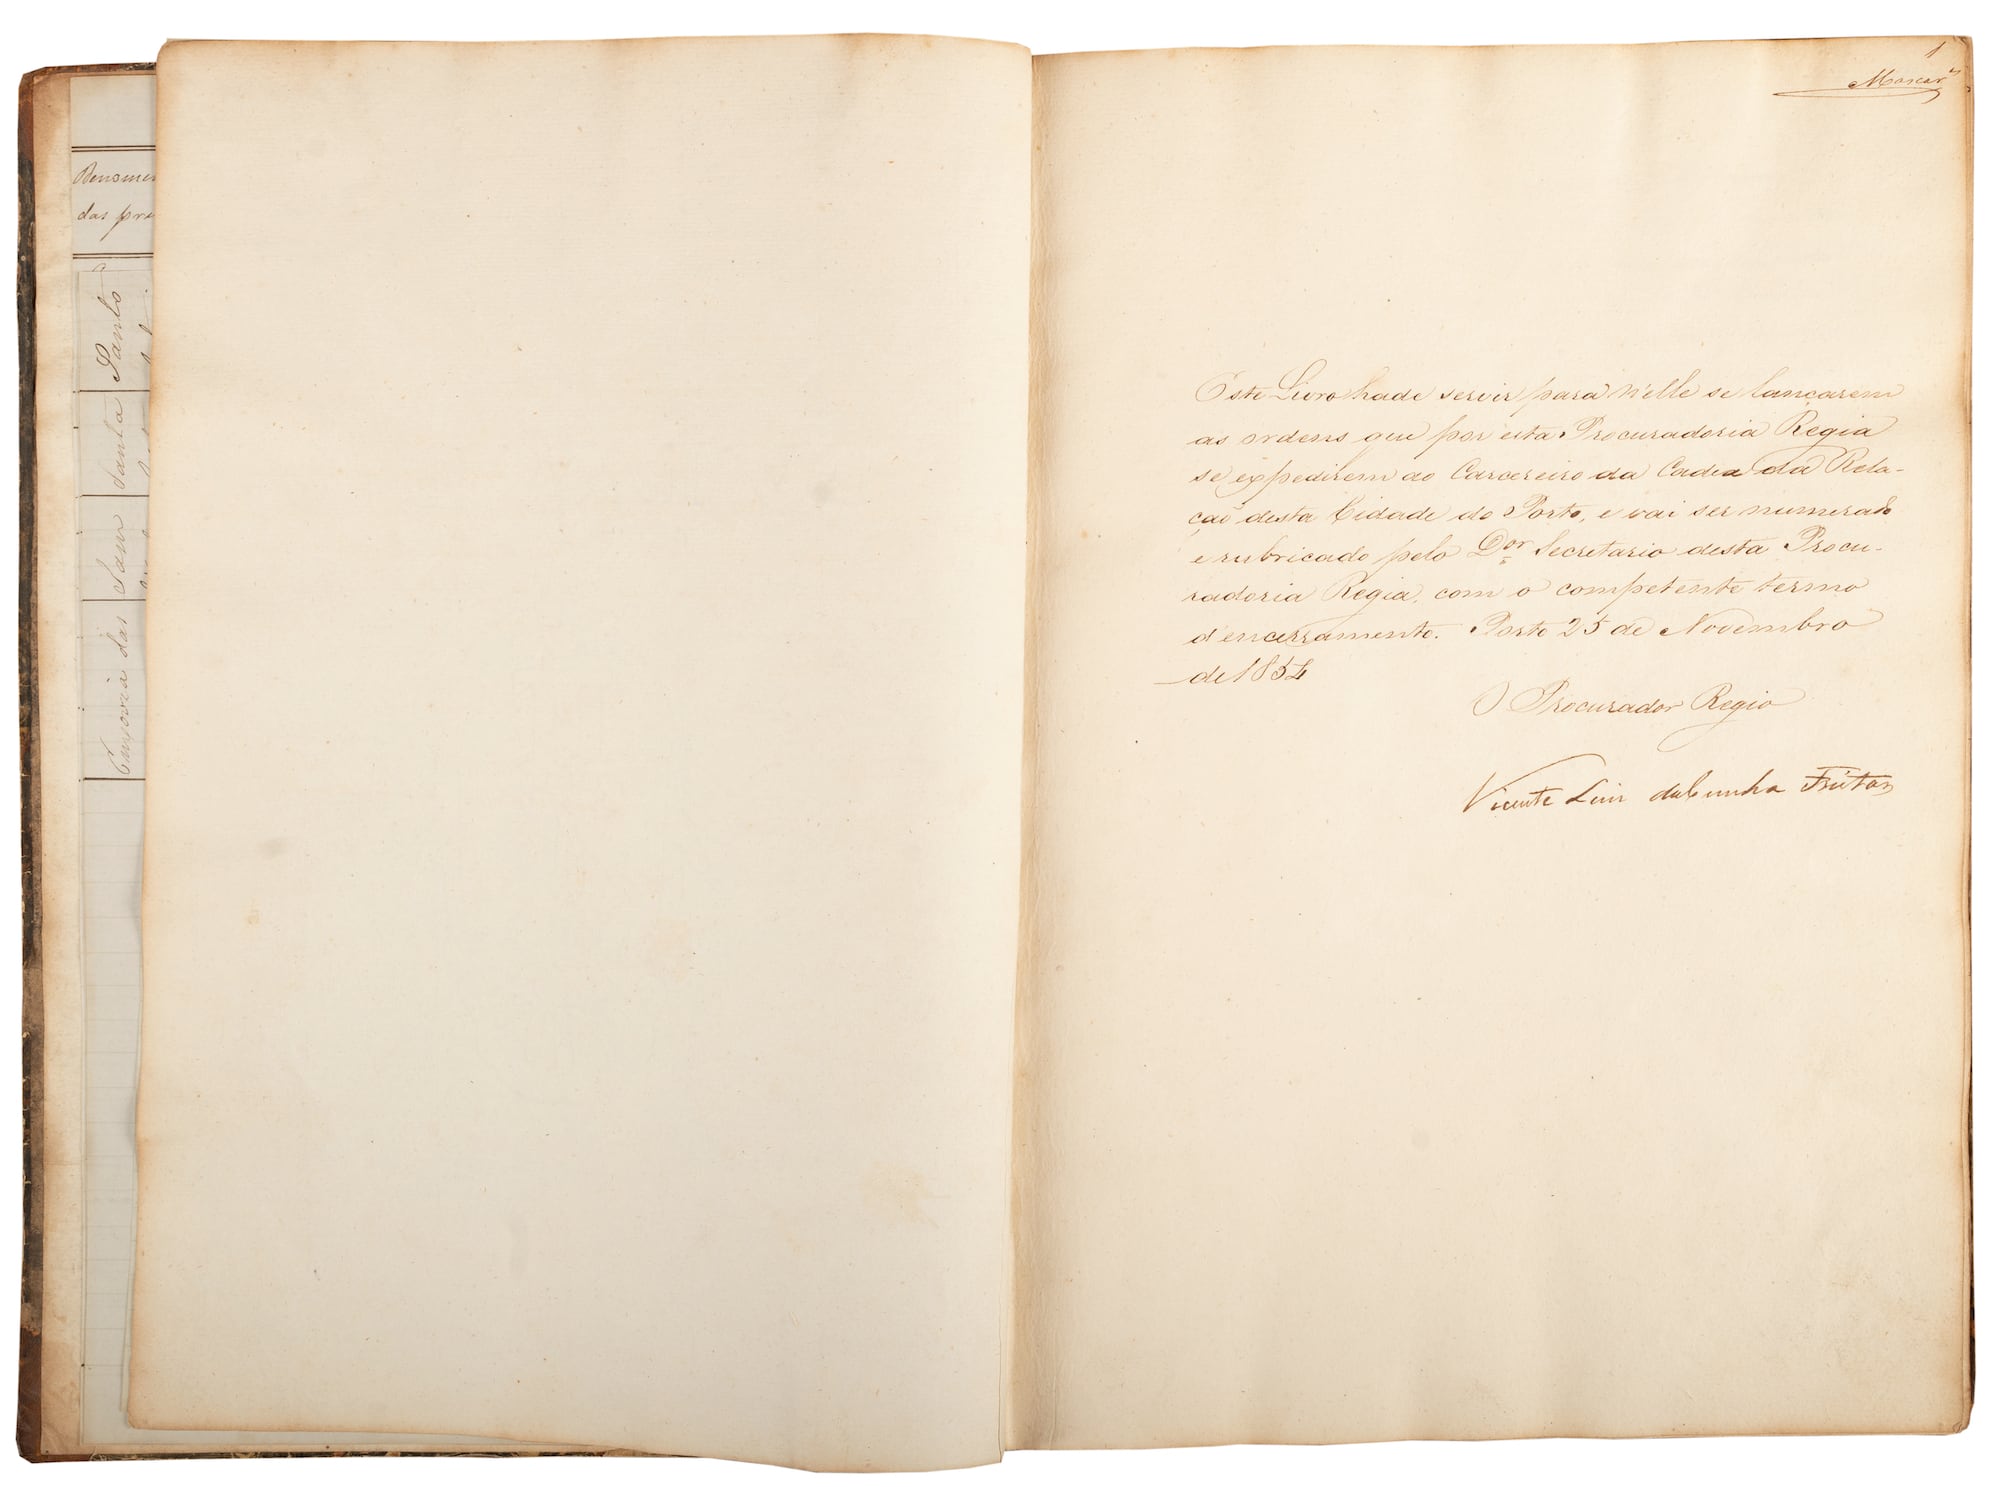 Denomi
das pr
Santo
Santa
Sam
Enxovia das
1
Mascar
Este Livro hade servir para n'elle se lançarem
as ordens que por esta Procuradoria Regia
se expedirem ao Carcereiro da Cadea da Rela-
ção desta Cidade do Porto, e vai ser numerado
e rubricado pelo Dor Secretario desta Procu-
radoria Regia, com o competente termo
d'encerramento. Porto 25 de Novembro
de 1854
O Procurador Regio
Vicente Luis da Cunha